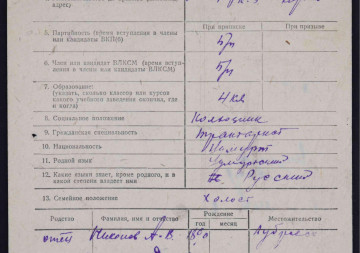 адрес)
При приписке При призыве
5. Партийность (время вступления в члены
или кандидаты ВКП(б)
б/п
6. Член или кандидат ВЛКСМ (время всту-
пления в члены или кандидаты ВЛКСМ)
б/п
7. Образование:
(указать, сколько классов или курсов
какого учебного заведения окончил, где
и когда)
4 кл
8. Социальное положение Колхозник
9. Гражданская специальность Тракторист
10. Национальность
11. Родной язык Удмуртский
12. Какие языки знает, кроме родного, и в
какой степени владеет ими Русский
13. Семейное положение Холост
Родство Фамилия, имя и отчество Рождение Местожительство
год месяц
отец Никонов А-В.